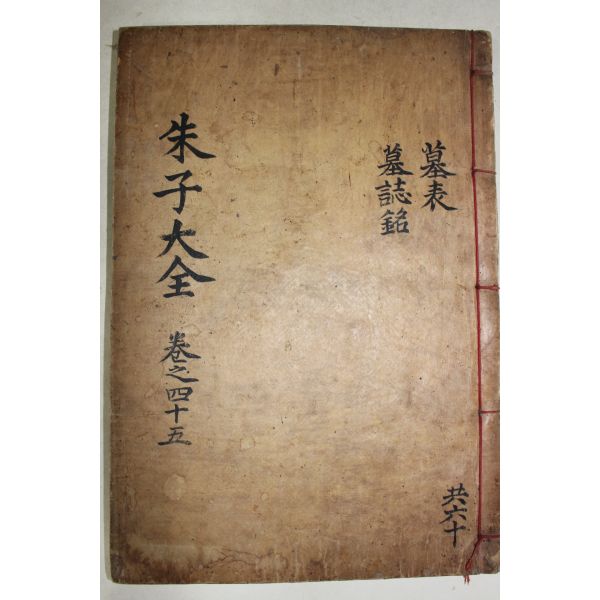 墓表
墓誌銘
共六十
朱子大全 卷之四十五